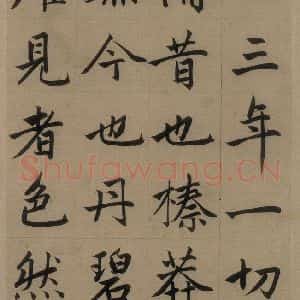 三年一切
昔也榛莽
今也丹碧
見者色然
Shufawang.CN